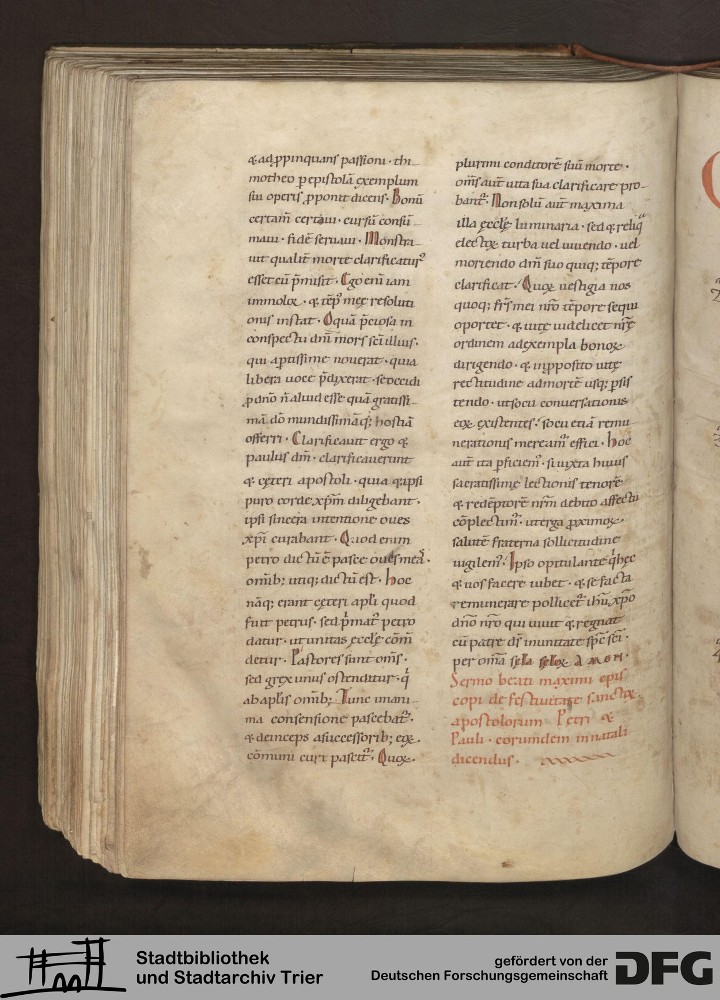 & adp̱pinquans passioni · thi-
motheo p̱ epistolā exemplum
sui operis p̱ponit dicens · Bonū
certam̄ certaui · cursū consū-
maui · fidē seruaui · Monstra-
uit qualit̄ morte clarificatur᷒
esset eū p̄misit · Ego eni iam
immolor · & tēp᷒ meę resoluti
onis instat · O quā p̄ciosa in
conspectu dnī mors sc̄i illius ·
qui aptissime nouerat · quia
libera uoce p̄dixerat · se occidi
p̱ dn̄o n̄ aliud esse quā gratissi-
mā dō mundissimāq; hostiā
offerri · Clarificauit ergo &
paulus dm̄ · clarificauerunt
& cęteri apostoli · quia & ipsi
puro corde xp̄m diligebant ·
ipsi sincera intentione oues
xp̄i curabant · Quod enim
petro dictū ē pasce oues meas ·
omīb; utiq; dictū est · hoc
nāq; erant cęteri apl̄i quod
fuit petrus · sed p̄mat᷒ petro
datur · ut unitas ęcclę cōm̄
detur · Pastores sunt om̄s ·
sed grex unus ostenditur · q̄
ab apl̄is omīb; Tunc unani-
ma consensione pascebat᷒ ·
& deinceps a successorib; eor̨
cōmuni cura pascit᷒ · Quor̨
plurimi conditorē suū morte ·
om̄s aut̄ uita sua clarificare pro-
bant᷒ · Non solū aut̄ maxima
illa ęcclę luminaria · sed & reliq̄
elector̨ turba uel uiuendo · uel
moriendo dm̄ suo quiq; tēpore
clarificat · Quor̨ uestigia nos
quoq; fr̄s mei nr̄o tēpore sequi
oportet · & uitę uidelicet nr̄ę
ordinem ad exempla bonor̨
dirigendo · & in p̱posito uitę
rectitudine ad mortē usq; p̱sis
tendo · ut socii conuersationis
eor̨ existentes · socii etiā remu
nerationis meream᷒ effici · hoc
aut̄ ita p̱ficiem᷒ · si iuxta huius
sacratissimę lectionis tenorē
& redēptorē nrm̄ debito affectu
cōplectim᷒ · & erga p̱ximor̨
salutē fraterna sollicitudine
uigilem᷒ · Ipso opitulante q̄ hęc
& nos facere iubet · & se facta
remunerare pollicet᷒ ihū xp̄o
dn̄o nr̄o qui uiuit & regnat
cū patre ds̄ in unitate sp̄c sc̄i ·
per omīa scl̄a scl̄or̨ Amen ·
Sermo beati maximi epis
copi de festiuitate sanctor̨
apostolorum Petri &
Pauli · eorumdem in natali
dicendus ·
Stadtbibliothek
und Stadtarchiv Trier
gefördert von der
Deutschen Forschungsgemeinschaft
DFG